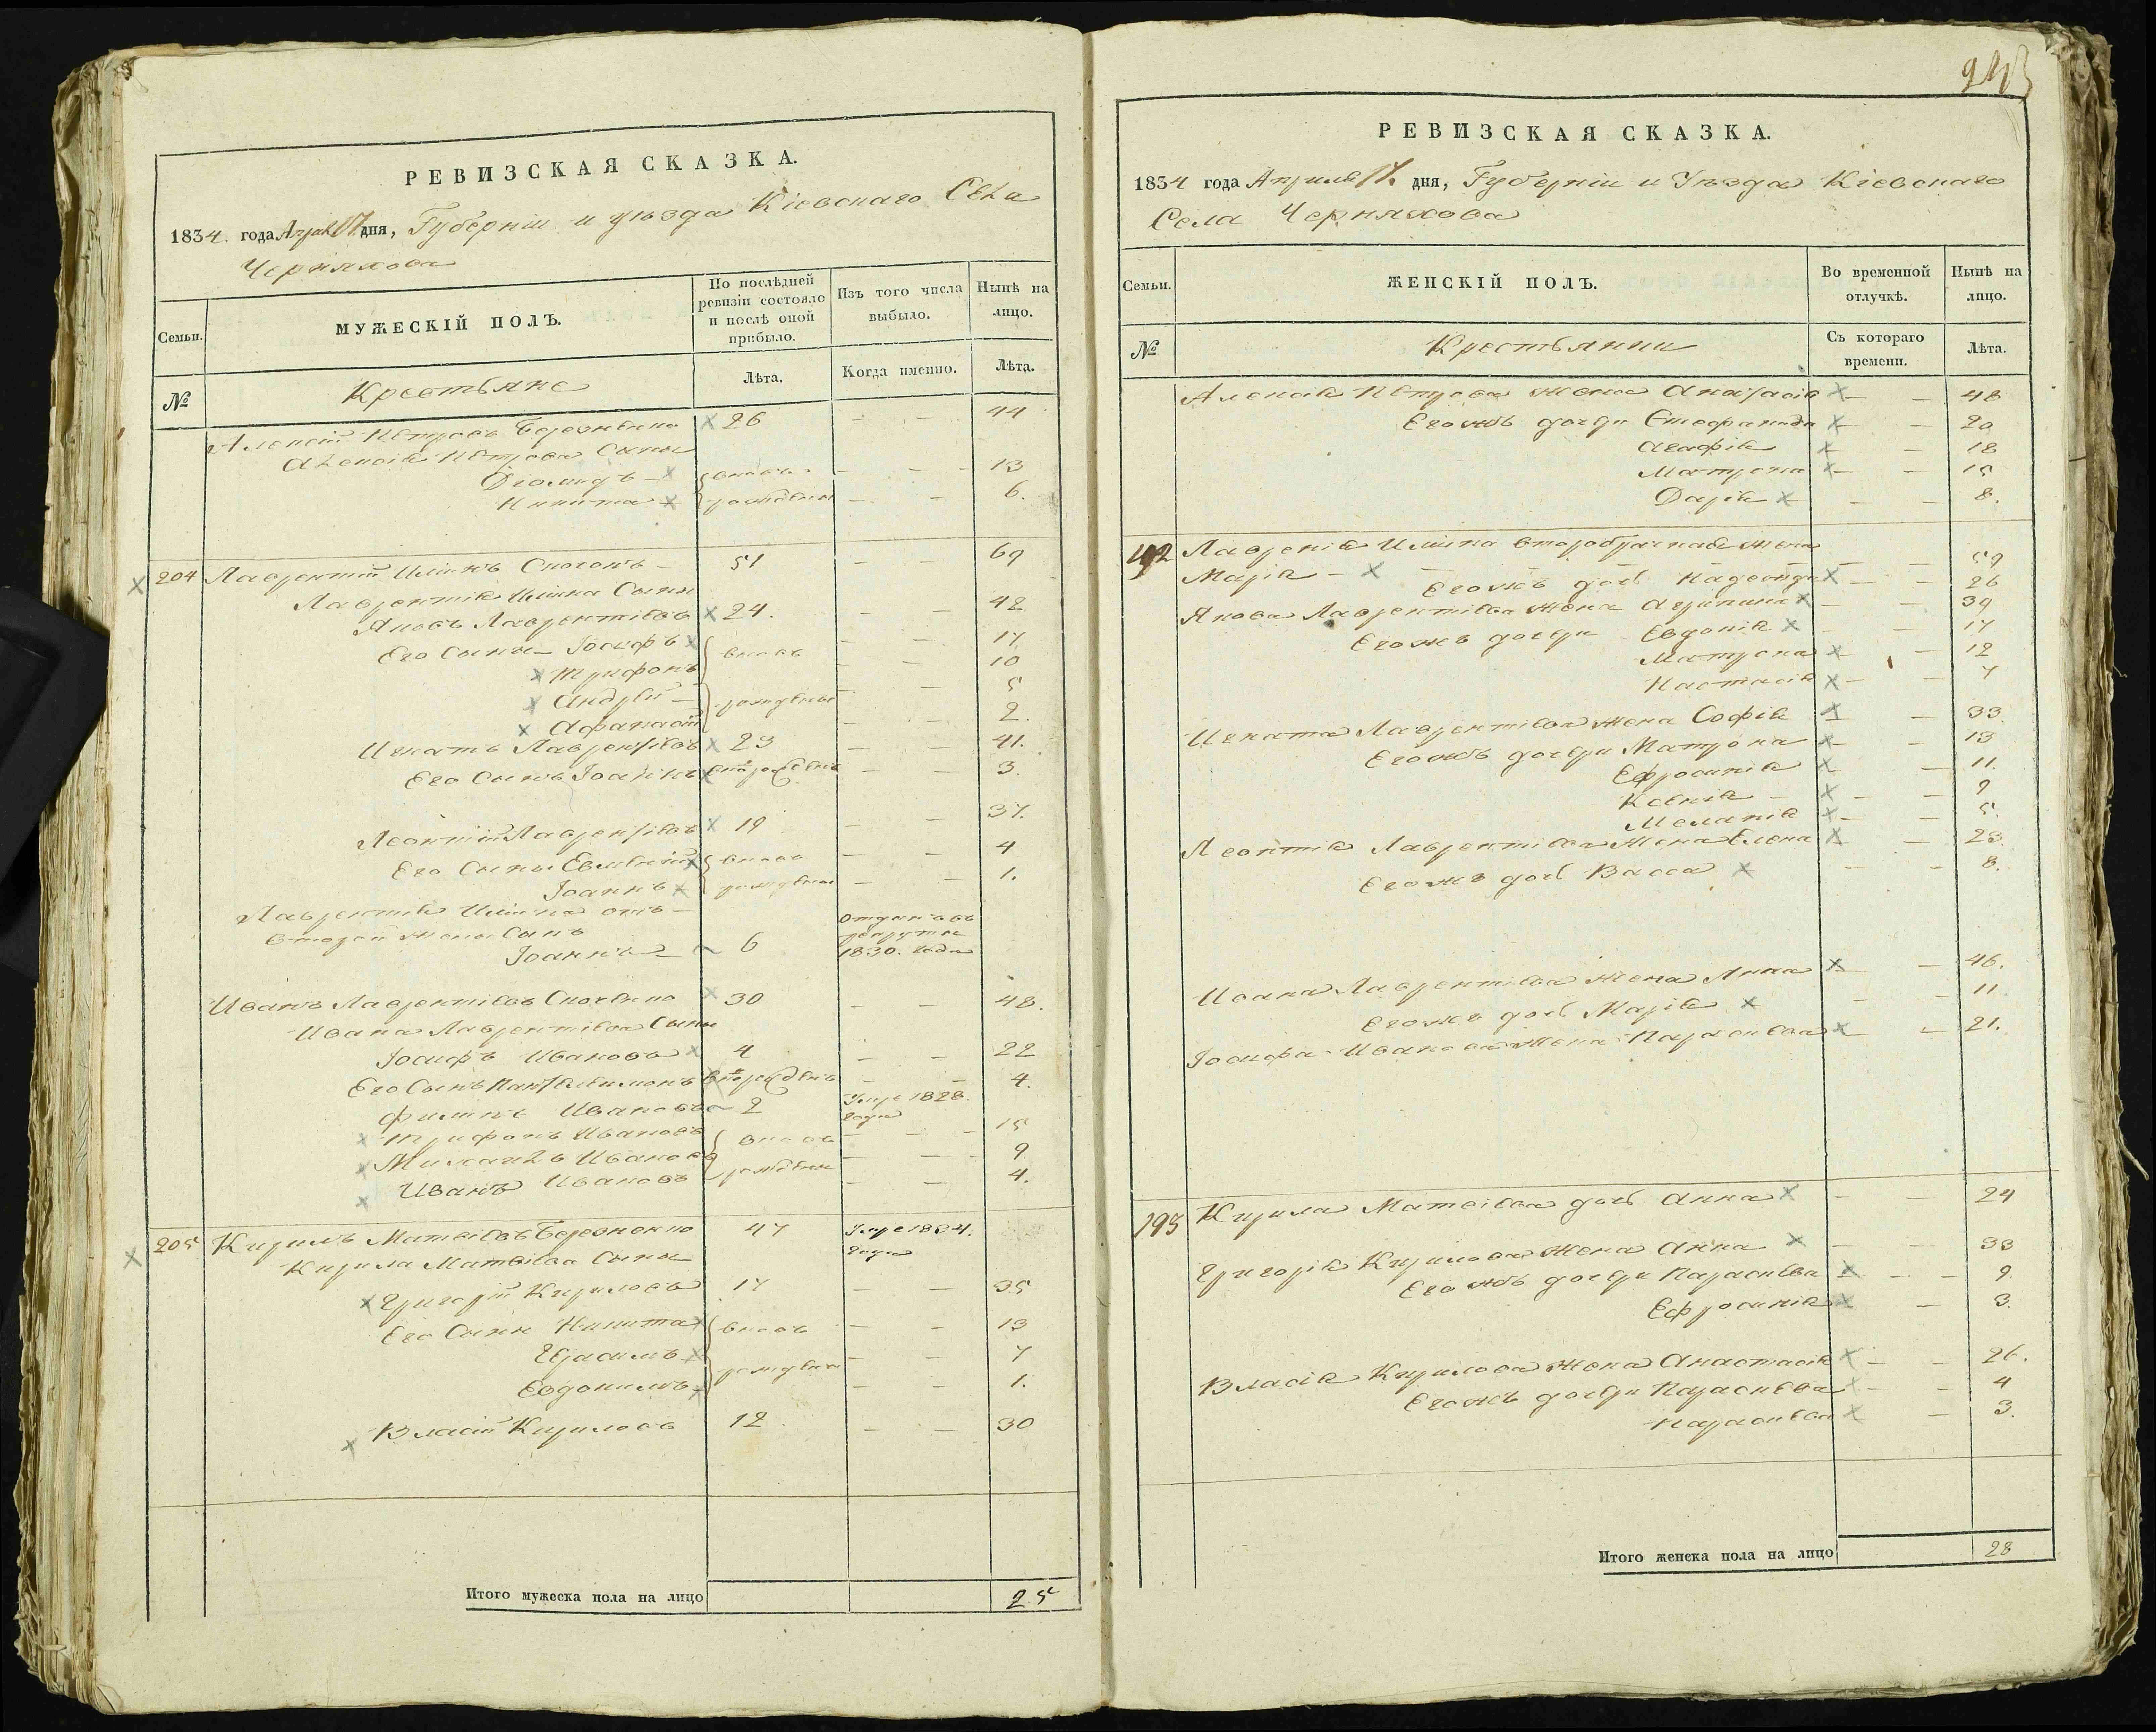 РЕВИЗСКАЯ СКАЗКА.
1834. года Апреля 17 дня, Губерніи и уѣзда Кіевскаго Села
Черняхова
Семьи.
МУЖЕСКІЙ ПОЛЪ.
По послѣдней ревизіи состояло и послѣ оной прибыло.
Изъ того числа выбыло.
Нынѣ на лицо.
№
Крестьяне
Лѣта.
Когда именно.
Лѣта.
Алексѣй Петровъ 26 — — 44
Алексѣя Петрова Сыны
Діомидъ — вновь — — 13
Никита рожденны — — 6.
204 Лаврентій 51 — — 69
Лаврентія Сыны
Яковъ Лаврентіевъ 24. — — 42
Его Сыны Іосифъ вновь — — 17
Трифонъ — — 10
Андрей рожденны — — 5
Афанасій — — 2.
Игнатъ Лаврентіевъ 23 — — 41.
Его Сынъ Іоаннъ — — 3.
Леонтій Лаврентіевъ 19 — — 37.
Его Сыны вновь — — 4
Іоаннъ рожденны — — 1.
Лаврентія отъ
второй жены Сынъ
Іоаннъ — 6 отданъ въ рекруты 1830. года
Иванъ Лаврентіевъ 30 — — 48.
Ивана Лаврентіева Сыны
Іосифъ Ивановъ 4 — — 22
Его Сынъ Пантелеимонъ — — 4.
Филипъ Ивановъ 2 Умре 1828. года
Трифонъ Ивановъ вновь — — 15
Михаилъ Ивановъ — — 9
Иванъ Ивановъ рожденны — — 4.
205 Кирилъ Матвѣевъ 47 Умре 1834. года
Кирила Матвѣева Сыны
Григорій Кириловъ 17 — — 35
Его Сыны Никита вновь — — 13
Герасимъ — — 7
Евдокимъ рожденны — — 1.
Власій Кириловъ 12 — — 30
Итого мужеска пола на лицо 25
РЕВИЗСКАЯ СКАЗКА.
1834 года Апреля 17. дня, Губерніи и Уѣзда Кіевскаго
Села Черняхова
Семьи.
ЖЕНСКІЙ ПОЛЪ.
Во временной отлучкѣ.
Нынѣ на лицо.
№
Крестьянки
Съ котораго времени.
Лѣта.
Алексѣя Петрова жена Анастасія — — 48
Егожъ дочери Стефанида — — 20
Агафія — — 18
Матрона — — 15
Дарія — — 8.
192 Лаврентія второбрачная жена
Марія — — — 59
Егожъ дочь Надежда — — 26
Якова Лаврентіева жена Агрипина — 39
Егожъ дочери Евдокія — 17
Матрона — — 12
Настасія — — 7
Игната Лаврентіева жена Софія — 33.
Егожъ дочери Матрона — — 13
Ефросинія — 11.
Ксенія — — — 9
Меланія — — 5.
Леонтія Лаврентіева Жена Елена — 23.
Егожъ дочь Васса — — 8.
Ивана Лаврентіева жена Анна — — 46.
Егожъ дочь Марія — — 11
Іосифа Иванова жена Параскева — — 21.
193 Кирила Матвѣева дочь Анна — — 24
Григорія Кирилова жена Анна — — 33
Егожъ дочери Параскева — — — 9
Ефросинія — — 3.
Власія Кирилова жена Анастасія — — 26.
Егожъ дочери Параскева — — 4
Параскева — 3.
Итого женска пола на лицо 28